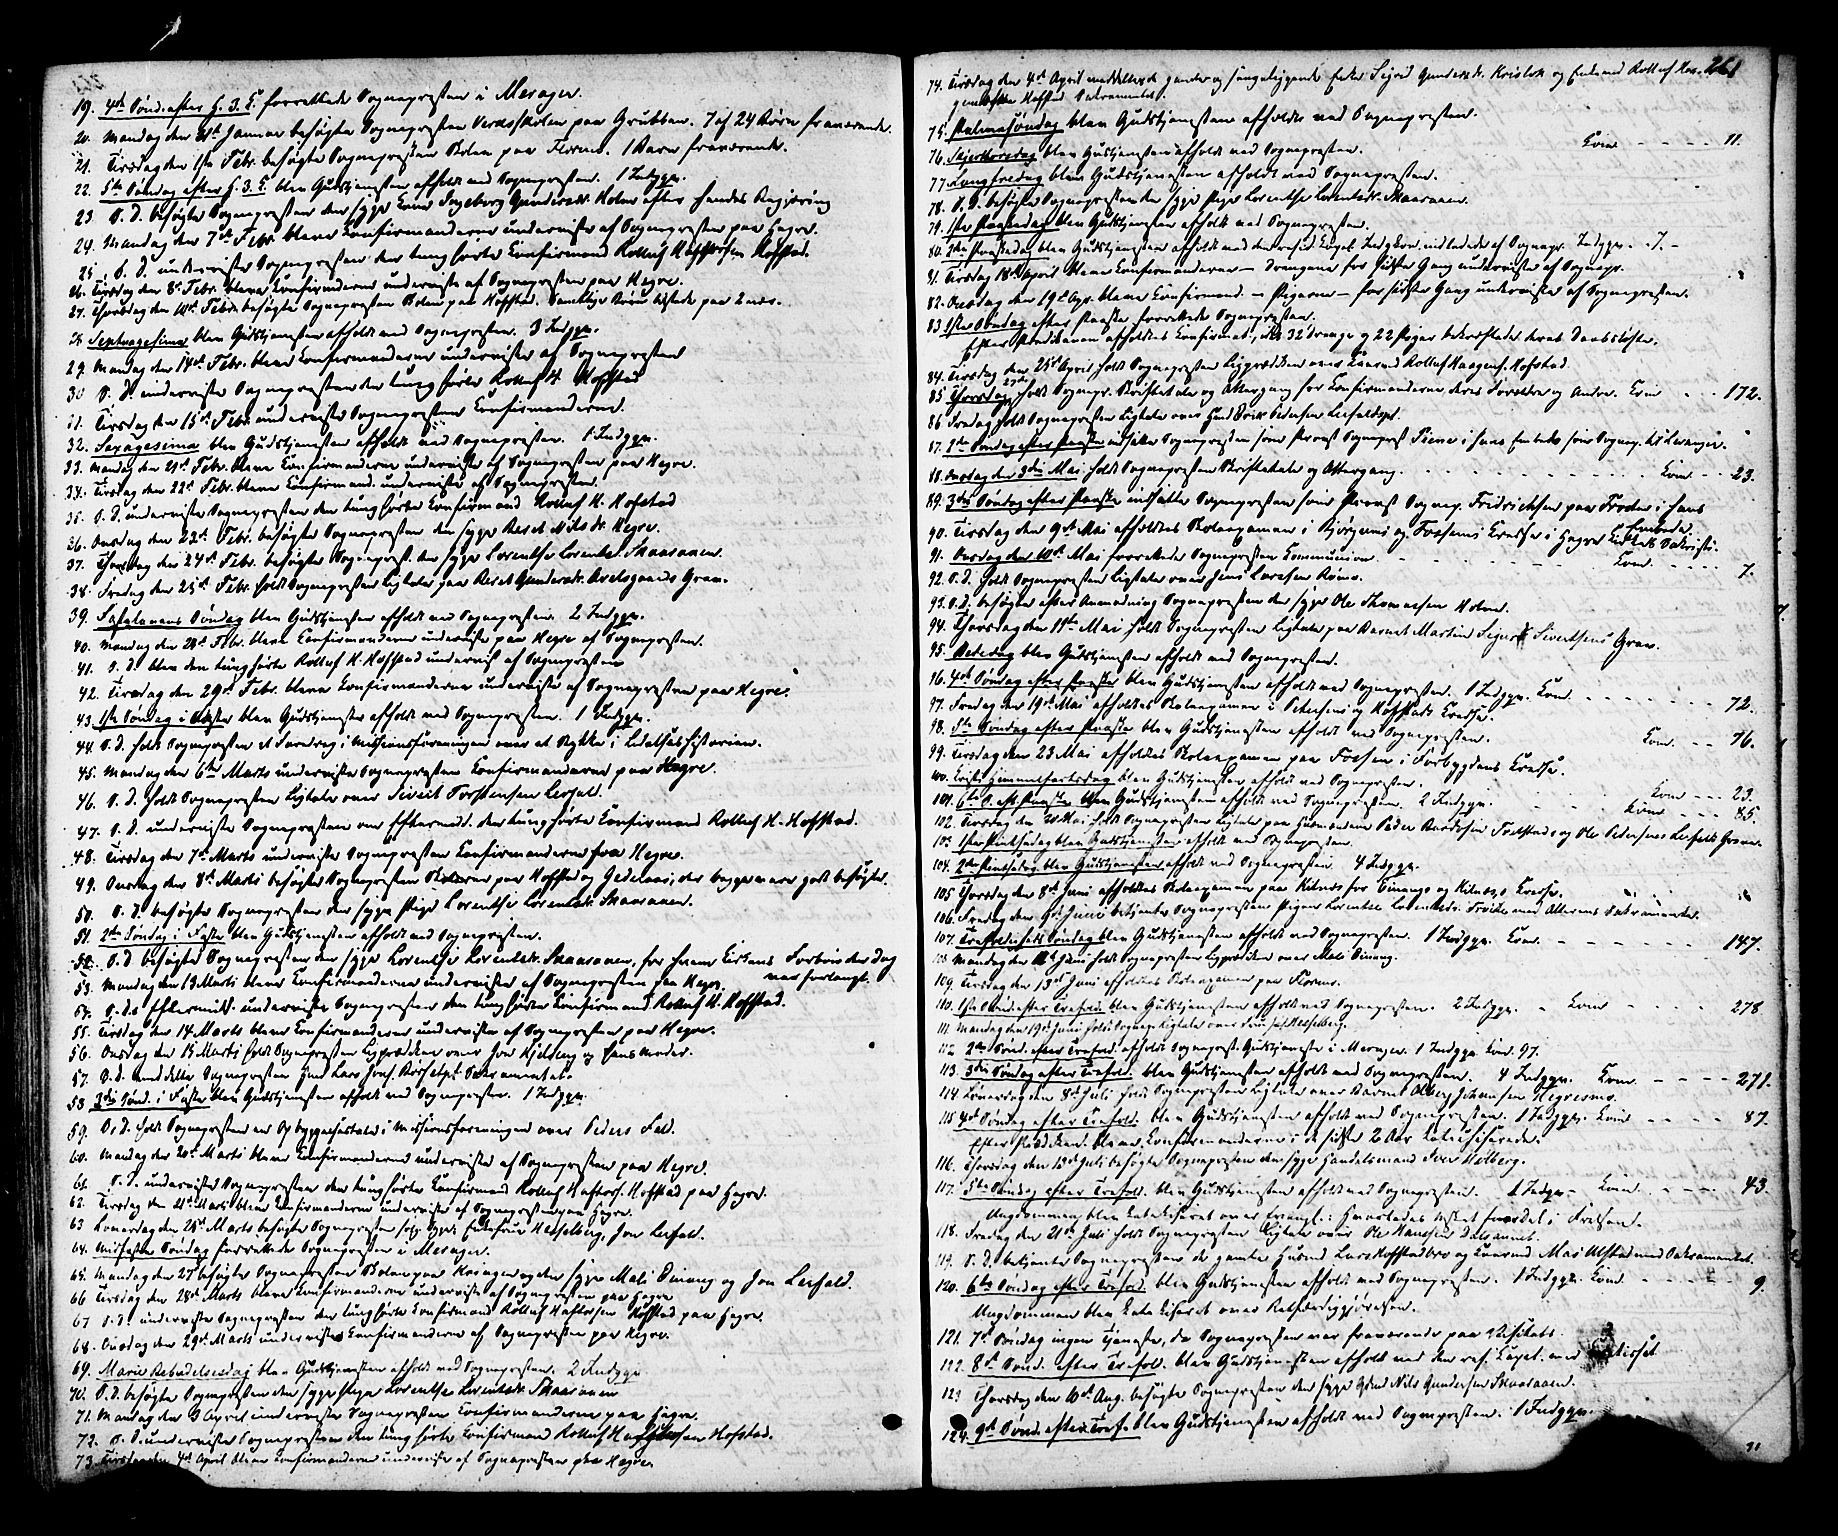 19. 4de Sønd. efter H. 3. K. forrettede Sognepresten i Merager.
20. Mandag den 31te Januar besøgte Sognepresten Veraskolen paa Grubben. 7 af 24 Børn fraværende.
21. Tirsdag den 1ste Febr. besøgte Sognepresten Skolen paa Flornes. 1 Barn fraværende.
22. 5te Søndag efter H. 3. K. blev Gudstjenesten afholdt ved Sognepresten. 1 Indggn.
23. S. D. besøgte Sognepresten den syge Kone Ingeborg Gundersdr. Holm efter hendes Begjæring
24. Mandag den 7de Febr. bleve Konfirmanderne underviste af Sognepresten paa Hegre.
25. S. D. underviste Sognepresten den tunghørte Konfirmand Rolluf Hoftorsen Hofstad.
26. Tirsdag den 8de Febr. bleve Konfirmanderne underviste af Sognepresten paa Hegre.
27. Thorsdag den 10de Febr. besøgte Sognepresten Skolen paa Hofstad. Samtlige Børn tilstede paa 2 nær.
28. Septuagesima blev Gudstjenesten afholdt ved Sognepresten. 3 Indggn.
29. Mandag den 14de Febr. bleve Konfirmanderne underviste af Sognepresten
30. S. D. underviste Sognepresten den tunghørte Rolluf H. Hofstad
31. Tirsdag den 15de Febr. underviste Sognepresten Konfirmanderne.
32. Sexagesima blev Gudstjenesten afholdt ved Sognepresten. 1 Indggn.
33. Mandag den 21de Febr. bleve Konfirmanderne underviste af Sognepresten paa Hegre.
34. Tirsdag den 22de Febr. bleve Konfirmand. underviste af Sognepresten.
35. S. D. underviste Sognepresten den tunghørte Konfirmand Rolluf H. Hofstad
36. Onsdag den 23de Febr. besøgte Sognepresten den syge Beret Nilsdr. Hegre.
37. Thorsdag den 24de Febr. besøgte Sogneprest. den syge Lorentse Lorentsdr. Skaaraaen.
38. Fredag den 25de Febr. holdt Sognepresten Ligtale paa Beret Gundersdr. Avelsgaards Grav.
39. Fastelavens Søndag blev Gudstjenesten afholdt ved Sognepresten. 2 Indggn.
40. Mandag den 28de Febr. bleve Konfirmanderne underviste paa Hegre af Sognepresten.
41. S. D. blev den tunghørte Rolluf H. Hofstad undervist af Sognepresten
42. Tirsdag den 29de Febr. bleve Konfirmanderne underviste af Sognepresten paa Hegre.
43. 1ste Søndag i Faste blev Gudstjenesten afholdt ved Sognepresten. 1 Indggn.
44. S. D. holdt Sognepresten et Foredrag i Missionsforeningen over et Stykke i Lidelseshistorien.
45. Mandag den 6te Marts underviste Sognepresten Konfirmanderne paa Hegre.
46. S. D. holdt Sognepresten Ligtale over Siveit Torstensen Leifald.
47. S. D. underviste Sognepresten om Eftermid. den tunghørte Konfirmand Rolluf H. Hofstad.
48. Tirsdag den 7de Marts underviste Sognepresten Konfirmanderne paa Hegre.
49. Onsdag den 8de Marts besøgte Sognepresten Skolerne paa Hofstad og Gedeaas; der begge vare godt besøgte.
50. S. D. besøgte Sognepresten den syge Pige Lorentse Lorentsdr. Skaaraaen.
51. 2den Søndag i Faste blev Gudstjenesten afholdt ved Sognepresten.
52. S. D. besøgte Sognepresten den syge Lorentse Lorentsdr. Skaaraaen, for hvem Kirkens Forbøn der Dag var forlangt.
53. Mandag den 13 Marts bleve Konfirmanderne underviste af Sognepresten paa Hegre.
54. S. D. Eftermid. underviste Sognepresten den tunghørte Konfirmand Rolluf H. Hofstad.
55. Tirsdag den 14 Marts bleve Konfirmanderne underviste af Sognepresten paa Hegre.
56. Onsdag den 15 Marts holdt Sognepresten Ligprædiken over Jon Kjelberg og Hans Moder.
57. S. D. meddelte Sognepresten Gmd Lars Jons. Sakramentet.
58. 3die Sønd. i Faste blev Gudstjenesten afholdt ved Sognepresten. 1 Indggn.
59. S. D. holdt Sognepresten en Opbyggelsestale i Missionsforeningen over Peders Fald.
60. Mandag den 20de Marts bleve Konfirmanderne underviste af Sognepresten paa Hegre.
61. S. D. underviste Sognepresten den tunghørte Konfirmand Rolluf Haftors. Hofstad paa Hegre.
62. Tirsdag den 21de Marts bleve Konfirmanderne underviste af Sognepresten paa Hegre.
63. Lørverdag den 25de Marts besøgte Sognepresten Enkefrue Hesselberg, Jon Leifald.
64. Midfaste Søndag forrettede Sognepresten i Merager.
65. Mandag den 27 besøgte Sognepresten Skolen paa og den syge Mali Dinang og Jon Leifald.
66. Tirsdag den 28de Marts bleve Konfirmanderne underviste af Sognepresten paa Hegre
67. S. D. underviste Sognepresten den tunghørte Konfirmand Rolluf Haftorsen Hofstad paa Hegre.
68. Onsdag den 29de Marts underviste Konfirmanderne af Sognepresten paa Hegre.
69. Mariæ Bebudelsesdag blev Gudstjenesten afholdt ved Sognepresten. 2 Indggn
70. S. D. besøgte Sognepresten den syge Pige Lorentse Lorentsdr. Skaaraaen
71. Mandag den 3 April underviste Sognepresten Konfirmanderne paa Hegre.
72. S. D. underviste Sognepresten den tunghørte Konfirmand Rolluf Hofstad.
73. Tirsdag den 4de April bleve Konfirmanderne underviste af Sognepresten paa Hegre.
261
74. Tirsdag den 4de April meddeltes gamle og sengeliggende Enke Sigrid Gundersdr. og
Hofstad Sakramentet.
75. Palmesøndag blev Gudstjenesten afholdt ved Sognepresten.
76. Skjertorsdag blev Gudstjenesten afholdt ved Sognepresten. Kom. - - - - 11.
77. Langfredag blev Gudstjenesten afholdt ved Sognepresten.
78. S. D. besøgte Sognepresten den syge Pige Lorentse Lorentsdr. Skaaraaen.
79. 1ste Paaskedag blev Gudstjenesten afholdt ved Sognepresten.
80. 2den Paaskedag blev Gudstjenesten afholdt ved den resid. Kapel. Indggn.
81. Tirsdag 18de April bleve Konfirmanderne - Drengene for sidste Gang underviste af Sognepr.
82. Onsdag den 19de Apr. bleve Konfirmand. - Pigerne - for sidste Gang underviste af Sognepresten.
83. 1ste Søndag efter Paaske forrettede Sognepresten.
Efter Prædikenen afholdtes Konfirmat., hvor 32 Drenge og 22 Piger bekræftede deres Daabsløfte.
84. Tirsdag den 25de April holdt Sognepresten Ligprædiken over Haagens. Hofstad.
85. Thorsdag 27de holdt Sognepr. Skriftetale og Altergang for Konfirmanderne, deres Forældre og Andre. Kom - - - 172.
86. Fredag holdt Sognepresten Ligtale over Gmd Erik Pedersen Leifaldspl.
87. 2den Søndag efter Paaske indsatte Sognepresten som Provst Sogneprest i hans Embede som Sognepr. til Levanger.
88. Onsdag den 3die Mai holdt Sognepresten Skriftetale og Altergang. - - - Kom - - 23.
89. 3die Søndag efter Paaske indsatte Sognepresten som Provst Sognepr. Fridrichsen paa Frosten i hans Embede.
90. Tirsdag den 9de Mai afholdtes Skoleexamen i og Kredse i Hegre Kirkes Sakristi.
91. Onsdag den 10de Mai forrettede Sognepresten Kommunion. - - - Kom. - - - 7.
92. S. D. holdt Sognepresten Ligtale over Jens Larsen
93. S. D. besøgte efter Anmodning Sognepresten den syge Ole Thomassen Holm.
94. Thorsdag den 11te Mai holdt Sognepresten Ligtale paa Barnet Martin Sivertsens Grav.
95. Bededag blev Gudstjenesten afholdt ved Sognepresten.
96. 4de Søndag efter Paaske blev Gudstjenesten afholdt ved Sognepresten. 1 Indggn. Kom. - - - 72.
97. Fredag den 19de Mai afholdtes Skoleexamen i og Hofstads Kredse.
98. 5te Søndag efter Paaske blev Gudstjenesten afholdt ved Sognepresten. Kom. - - 76.
99. Tirsdag den 23 Mai afholdtes Skoleexamen paa Fossen i Forbygdens Kredse.
100. Kristi Himmelfartsdag blev Gudstjenesten afholdt ved Sognepresten. Kom - - - 23.
101. 6te S. eft. Paaske blev Gudstjenesten afholdt ved Sognepresten. 2 Indggn. Kom - - - 85.
102. Tirsdag den 30 Mai holdt Sognepresten Ligtale paa Husmændene Peder og Ole Pedersens Leifalds Grave.
103. 1ste Pintsedag blev Gudstjenesten afholdt ved Sognepresten.
104. 2den Pintsedag blev Gudstjenesten afholdt ved Sognepresten. 4 Indggn.
105. Thorsdag den 8de Juni afholdtes Skoleexamen paa Kilnes for Dinangs og Kilnæs's Kredse.
106. Fredag den 9de Juni betjente Sognepresten Pigen Lorentse Lorentsdr. med Alterens Sakramente.
107. Trefoldigheds Søndag blev Gudstjenesten afholdt ved Sognepresten. 1 Indggn. Kom. - - - 147.
108. Mandag den 12te Juni holdt Sognepresten Ligprædiken over Mali Dinang.
109. Tirsdag den 13de Juni afholdtes Skoleexamen paa Flornes.
110. 1ste Sønd. efter Trefold. blev Gudstjenesten afholdt ved Sognepresten. 2 Indggn. - Kom - - - 278
111. Mandag den 19de Juni holdt Sognepr. Ligtale over Hesselberg.
112. 2den Sønd. efter Trefold. afholdt Sogneprest. Gudstjeneste i Merager. 1 Indggn. Kom. 97.
113. 3die Søndag efter Trefold. blev Gudstjenesten afholdt ved Sognepresten. 4 Indggn. Kom. - - - 271.
114. Lørverdag den 8de Juli holdt Sognepresten Ligtale over Barnet Johansen Hegresmo.
115. 4de Søndag efter Trefold. blev Gudstjenesten afholdt ved Sognepresten. 1 Indggn. Kom - - - 87.
Efter Prædiken bleve Konfirmanderne i de sidste 2 Aar katechiserede.
116. Thorsdag den 13de Juli besøgte Sognepresten den syge Handelsmand Iver Kelberg.
117. 5te Søndag efter Trefold. blev Gudstjenesten afholdt ved Sognepresten. 1 Indggn - Kom. - - - 43.
Ungdommen blev katekiseret over Evangl.: Hvorledes Livet i Frelsen.
118. Fredag den 21de Juli holdt Sognepresten Ligtale over Ole Hansen Dalsaunet.
119. S. D. betjente Sognepresten de gamle Husmd Lars Hofstadbro og Kvaarmd Mari Ulstad med Sakramentet.
120. 6te Søndag efter Trefold. blev Gudstjenesten afholdt ved Sognepresten. 1 Indggn. Kom - - - 9.
Ungdommen blev katekiseret over Retfærdiggjørelsen.
121. 7de Søndag ingen Tjeneste, da Sognepresten var fraværende paa Visitats.
122. 8de Sønd. efter Trefold. blev Gudstjenesten afholdt ved den res. Kapel. ved
123. Thorsdag den 10de Aug. besøgte Sognepresten den syge Gmd Nils Gundersen Skaaraaen.
124. 9de Sønd. efter Tref. blev Gudstjenesten afholdt ved Sognepresten. 1 Indggn.